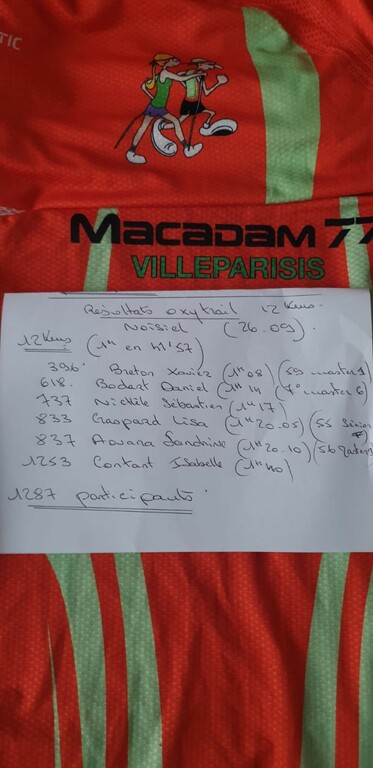 TIC
MACADAM 77
VILLEPARISIS
Résultats oxytrail 12 Kms.
Noisiel (26.09)
12 Kms (1er en 41'57)
396. Breton Xavier (1H08) (59 master 1)
618. Bodart Daniel (1H14 (7° master 6)
737 Sébastien (1H17)
833 Gaspard Lisa (1H20.05) (55 Sénior F)
837 Sandrine (1H20.10) (56
1253 Contant Isabelle (1H40)
1287 participants.